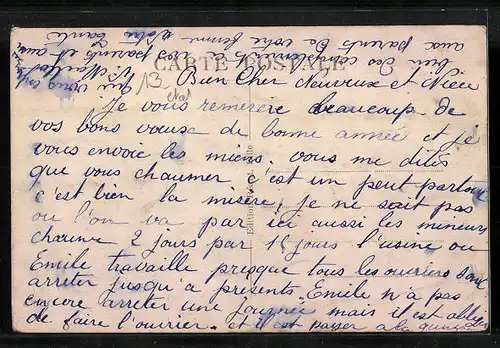 CARTE POSTALE
13
Bien Cher Neuveux et Nièce
Je vous remercie beaucoup de
vos bons vœux de bonne année et je
vous envoie les miens. vous me dites
que vous chaumer c'est un peut partout
c'est bien la misère, je ne sait pas
ou l'on va par ici aussi les mineurs
chaume 2 jours par 15 jours l'usine ou
Emile travaille presque tous les ouvriers sont
arrêter jusqu'a présents. Emile n'a pas
encore arrêter une journée mais il est obliger
de faire l'ouvrier. et il est payer a la
bien des compliments a vos parents et aussi
aux parents de votre femme votre tante
qui vous